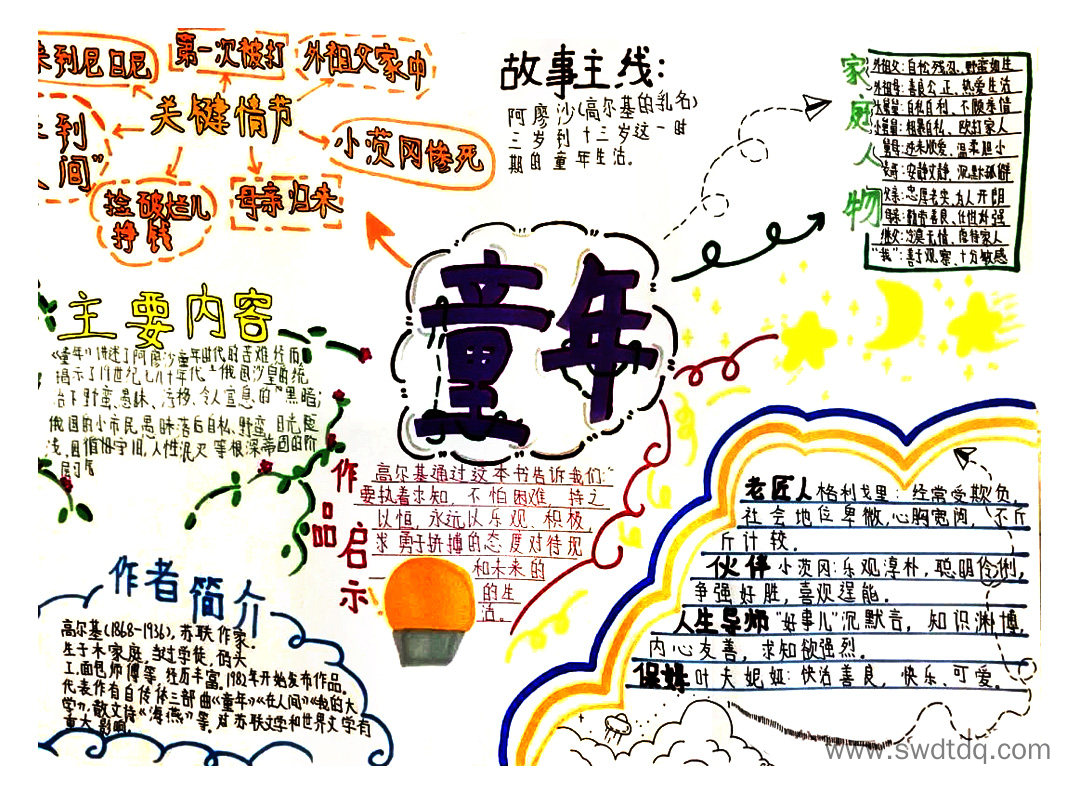 来到尼日尼
第一次被打
外祖父家中
关键情节
到
间”
小茨冈惨死
捡破烂儿
挣钱
母亲归来
故事主线：
阿廖沙(高尔基的乳名)
三岁到十三岁这一时
期的童年生活。
家庭人物
外祖父：自私残忍、野蛮如生
外祖母：善良公正、热爱生活
大舅舅：自私自利、不顾亲情
小舅舅：粗暴自私、殴打家人
舅母：逆来顺受、温柔胆小
表哥：安静文静、沉默孤僻
父亲：忠厚老实、为人开朗
母亲：勤劳善良、任性好强
继父：冷漠无情、虐待家人
“我”：善于观察、十分敏感
童年
主要内容
《童年》讲述了阿廖沙童年时代的苦难经历
揭示了19世纪七八十年代，俄国沙皇的统
治下野蛮、愚昧、污秽、令人窒息的“黑暗；
俄国的小市民愚昧落后自私、野蛮、目光短
浅、因循守旧，人性泯灭等根深蒂固的阶
层习气
作品启示
高尔基通过这本书告诉我们：
要执着求知，不怕困难，持之
以恒，永远以乐观、积极，
求勇于拼搏的态度对待现
和未来的
的生
活。
作者简介
高尔基(1868-1936)，苏联作家.
生于木家庭当过学徒，码头
工.面包师傅等，经历丰富。1982年开始发布作品。
代表作有自传体三部曲《童年》《在人间》《我的大
学》，散文诗《海燕》等.对苏联文学和世界文学有
重大影响.
老匠人格利戈里：经常受欺负，
社会地位卑微，心胸宽阔，不斤
斤计较。
伙伴小茨冈：乐观淳朴，聪明伶俐，
争强好胜，喜观逞能。
人生导师“好事儿”沉默言，知识渊博，
内心友善，求知欲强烈。
保姆叶夫妮娅：快活善良，快乐、可爱。
www.swdtdq.com